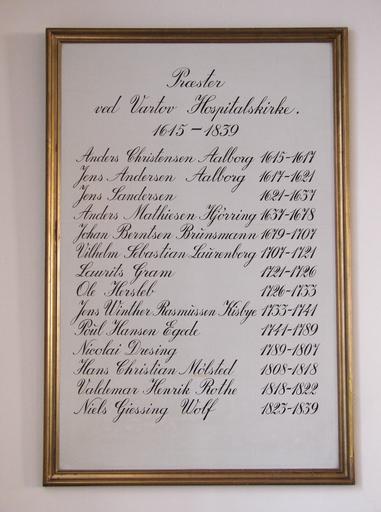 Præster
ved Vartov Hospitalskirke.
1615-1839
Anders Christensen Aalborg 1615-1617
Jens Andersen Aalborg 1617-1621
Jens Sandersen 1621-1637
Anders Mathiesen Hjörring 1637-1678
Johan Berntsen Brŭnsmann 1679-1707
Vilhelm Sebastian Laŭrenberg 1707-1721
Laurits Gram 1721-1726
Ole Hersleb 1726-1733
Jens Winther Rasmŭssen Kisbye 1733-1741
Poŭl Hansen Egede 1741-1789
Nicolai Dŭsing 1789-1807
Hans Christian Mölsted 1808-1818
Valdemar Henrik Rothe 1818-1822
Niels Giessing Wolf 1823-1839